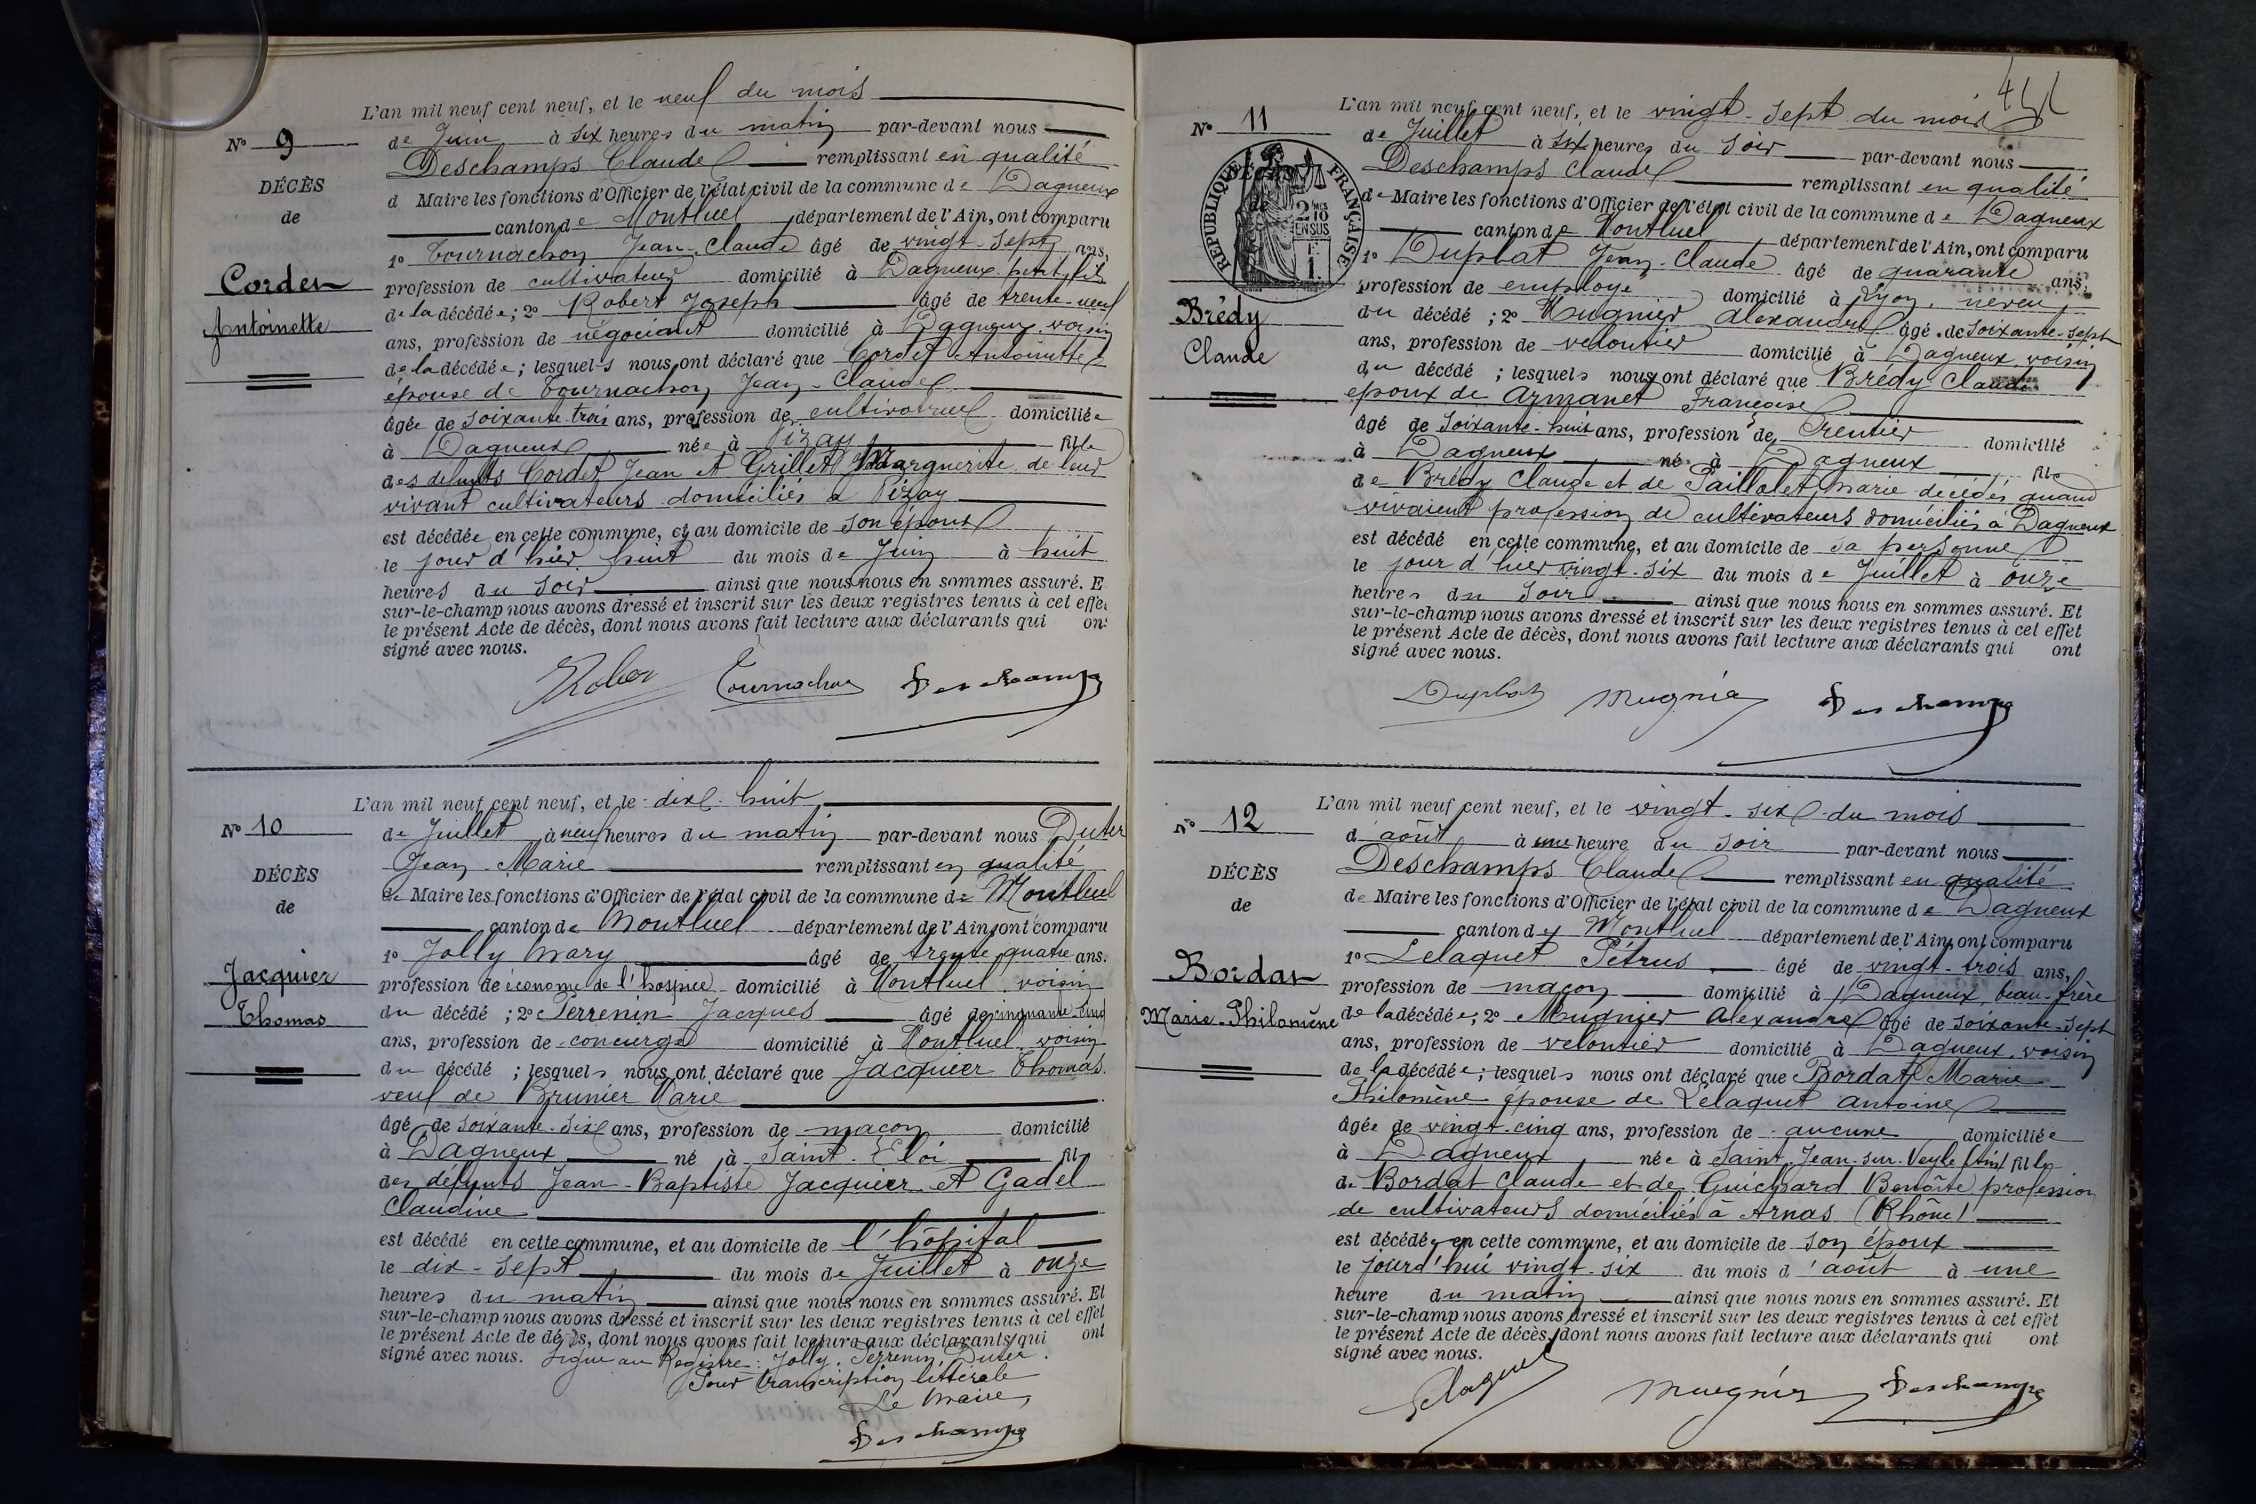 L'an mil neuf cent neuf, et le neuf du mois
N° 9
de Juin à six heures du matin par-devant nous
Deschamps Claude remplissant en qualité
DÉCÈS
d Maire les fonctions d'Officier de l'état civil de la commune de Dagneux
de
canton de Montluel, département de l'Ain, ont comparu
1° Tournachon Jean-Claude âgé de vingt-sept ans,
Cordet
profession de cultivateur domicilié à Dagneux petit fils
Antoinette
de la décédée; 2° Robert Joseph âgé de trente-neuf
ans, profession de négociant domicilié à Dagneux voisin
de la décédée; lesquels nous ont déclaré que Cordet Antoinette
épouse de Tournachon Jean-Claude
âgée de soixante-trois ans, profession de cultivatrice domiciliée
à Dagneux née à Pizay fille
des défunts Cordet Jean et Grillet Marguerite de leur
vivant cultivateurs domiciliés à Pizay
est décédée en cette commune, et au domicile de son époux
le jour d'hier huit du mois de Juin à huit
heures du soir ainsi que nous nous en sommes assuré. E
sur-le-champ nous avons dressé et inscrit sur les deux registres tenus à cet effe
le présent Acte de décès, dont nous avons fait lecture aux déclarants qui on
signé avec nous.
Robert Tournachon Deschamps
L'an mil neuf cent neuf, et le dix-huit
N° 10
de Juillet à neuf heures du matin par-devant nous Duter
Jean-Marie remplissant en qualité
DÉCÈS
de Maire les fonctions d'Officier de l'état civil de la commune de Montluel
de
canton de Montluel département de l'Ain, ont comparu
1° Jolly Mary âgé de trente quatre ans.
Jacquier
profession de économe de l'hospice domicilié à Montluel voisin
Thomas
du décédé ; 2° Perrenin Jacques âgé de cinquante cinq
ans, profession de concierge domicilié à Montluel voisin
du décédé ; lesquels nous ont déclaré que Jacquier Thomas
veuf de Brunier Marie
âgé de soixante-six ans, profession de maçon domicilié
à Dagneux né à Saint-Eloi fils
des défunts Jean-Baptiste Jacquier et Gadel
Claudine
est décédé en cette commune, et au domicile de l'hôpital
le dix-sept du mois de Juillet à onze
heures du matin ainsi que nous nous en sommes assuré. Et
sur-le-champ nous avons dressé et inscrit sur les deux registres tenus à cet effet
le présent Acte de décès, dont nous avons fait lecture aux déclarants qui ont
signé avec nous. Signé au Registre: Jolly, Perrenin, Duter.
Pour transcription littérale
Le Maire
Deschamps
L'an mil neuf cent neuf, et le vingt-sept du mois
N° 11
de Juillet à six heures du soir par-devant nous
Deschamps Claude remplissant en qualité
RÉPUBLIQUE FRANÇAISE
2/10 EN SUS
de Maire les fonctions d'Officier de l'état civil de la commune de Dagneux
canton de Montluel département de l'Ain, ont comparu
1° Duplat Jean-Claude âgé de quarante ans,
profession de employé domicilié à Lyon, neveu
Brédy
Claude
du décédé ; 2° Mugnier Alexandre âgé de soixante-sept
ans, profession de veloutier domicilié à Dagneux voisin
du décédé ; lesquels nous ont déclaré que Brédy Claude
époux de Armanet Françoise
âgé de soixante-huit ans, profession de rentier domicilié
à Dagneux né à Dagneux fils
de Brédy Claude et de Paillolet Marie décédés quand
vivaient profession de cultivateurs domiciliés à Dagneux
est décédé en cette commune, et au domicile de sa personne
le jour d'hier vingt-six du mois de Juillet à onze
heures du soir ainsi que nous nous en sommes assuré. Et
sur-le-champ nous avons dressé et inscrit sur les deux registres tenus à cet effet
le présent Acte de décès, dont nous avons fait lecture aux déclarants qui ont
signé avec nous.
Duplat Mugnier Deschamps
L'an mil neuf cent neuf, et le vingt-six du mois
N° 12
d'août à une heure du soir par-devant nous
Deschamps Claude remplissant en qualité
DÉCÈS
de Maire les fonctions d'Officier de l'état civil de la commune de Dagneux
de
canton de Montluel département de l'Ain, ont comparu
1° Lelaquet Pétrus âgé de vingt-trois ans,
Bordat
profession de maçon domicilié à Dagneux, beau-frère
Marie-Philomène
de la décédée; 2° Mugnier Alexandre âgé de soixante-sept
ans, profession de veloutier domicilié à Dagneux, voisin
de la décédée; lesquels nous ont déclaré que Bordat Marie
Philomène épouse de Lelaquet Antoine
âgée de vingt-cinq ans, profession de aucune domiciliée
à Dagneux née à Saint-Jean-sur-Veyle (Ain) fille
de Bordat Claude et de Guichard Benoîte profession
de cultivateurs domiciliés à Arnas (Rhône)
est décédée en cette commune, et au domicile de son époux
le jourd'hui vingt-six du mois d'août à une
heure du matin ainsi que nous nous en sommes assuré. Et
sur-le-champ nous avons dressé et inscrit sur les deux registres tenus à cet effet
le présent Acte de décès, dont nous avons fait lecture aux déclarants qui ont
signé avec nous.
Lelaquet Mugnier Deschamps